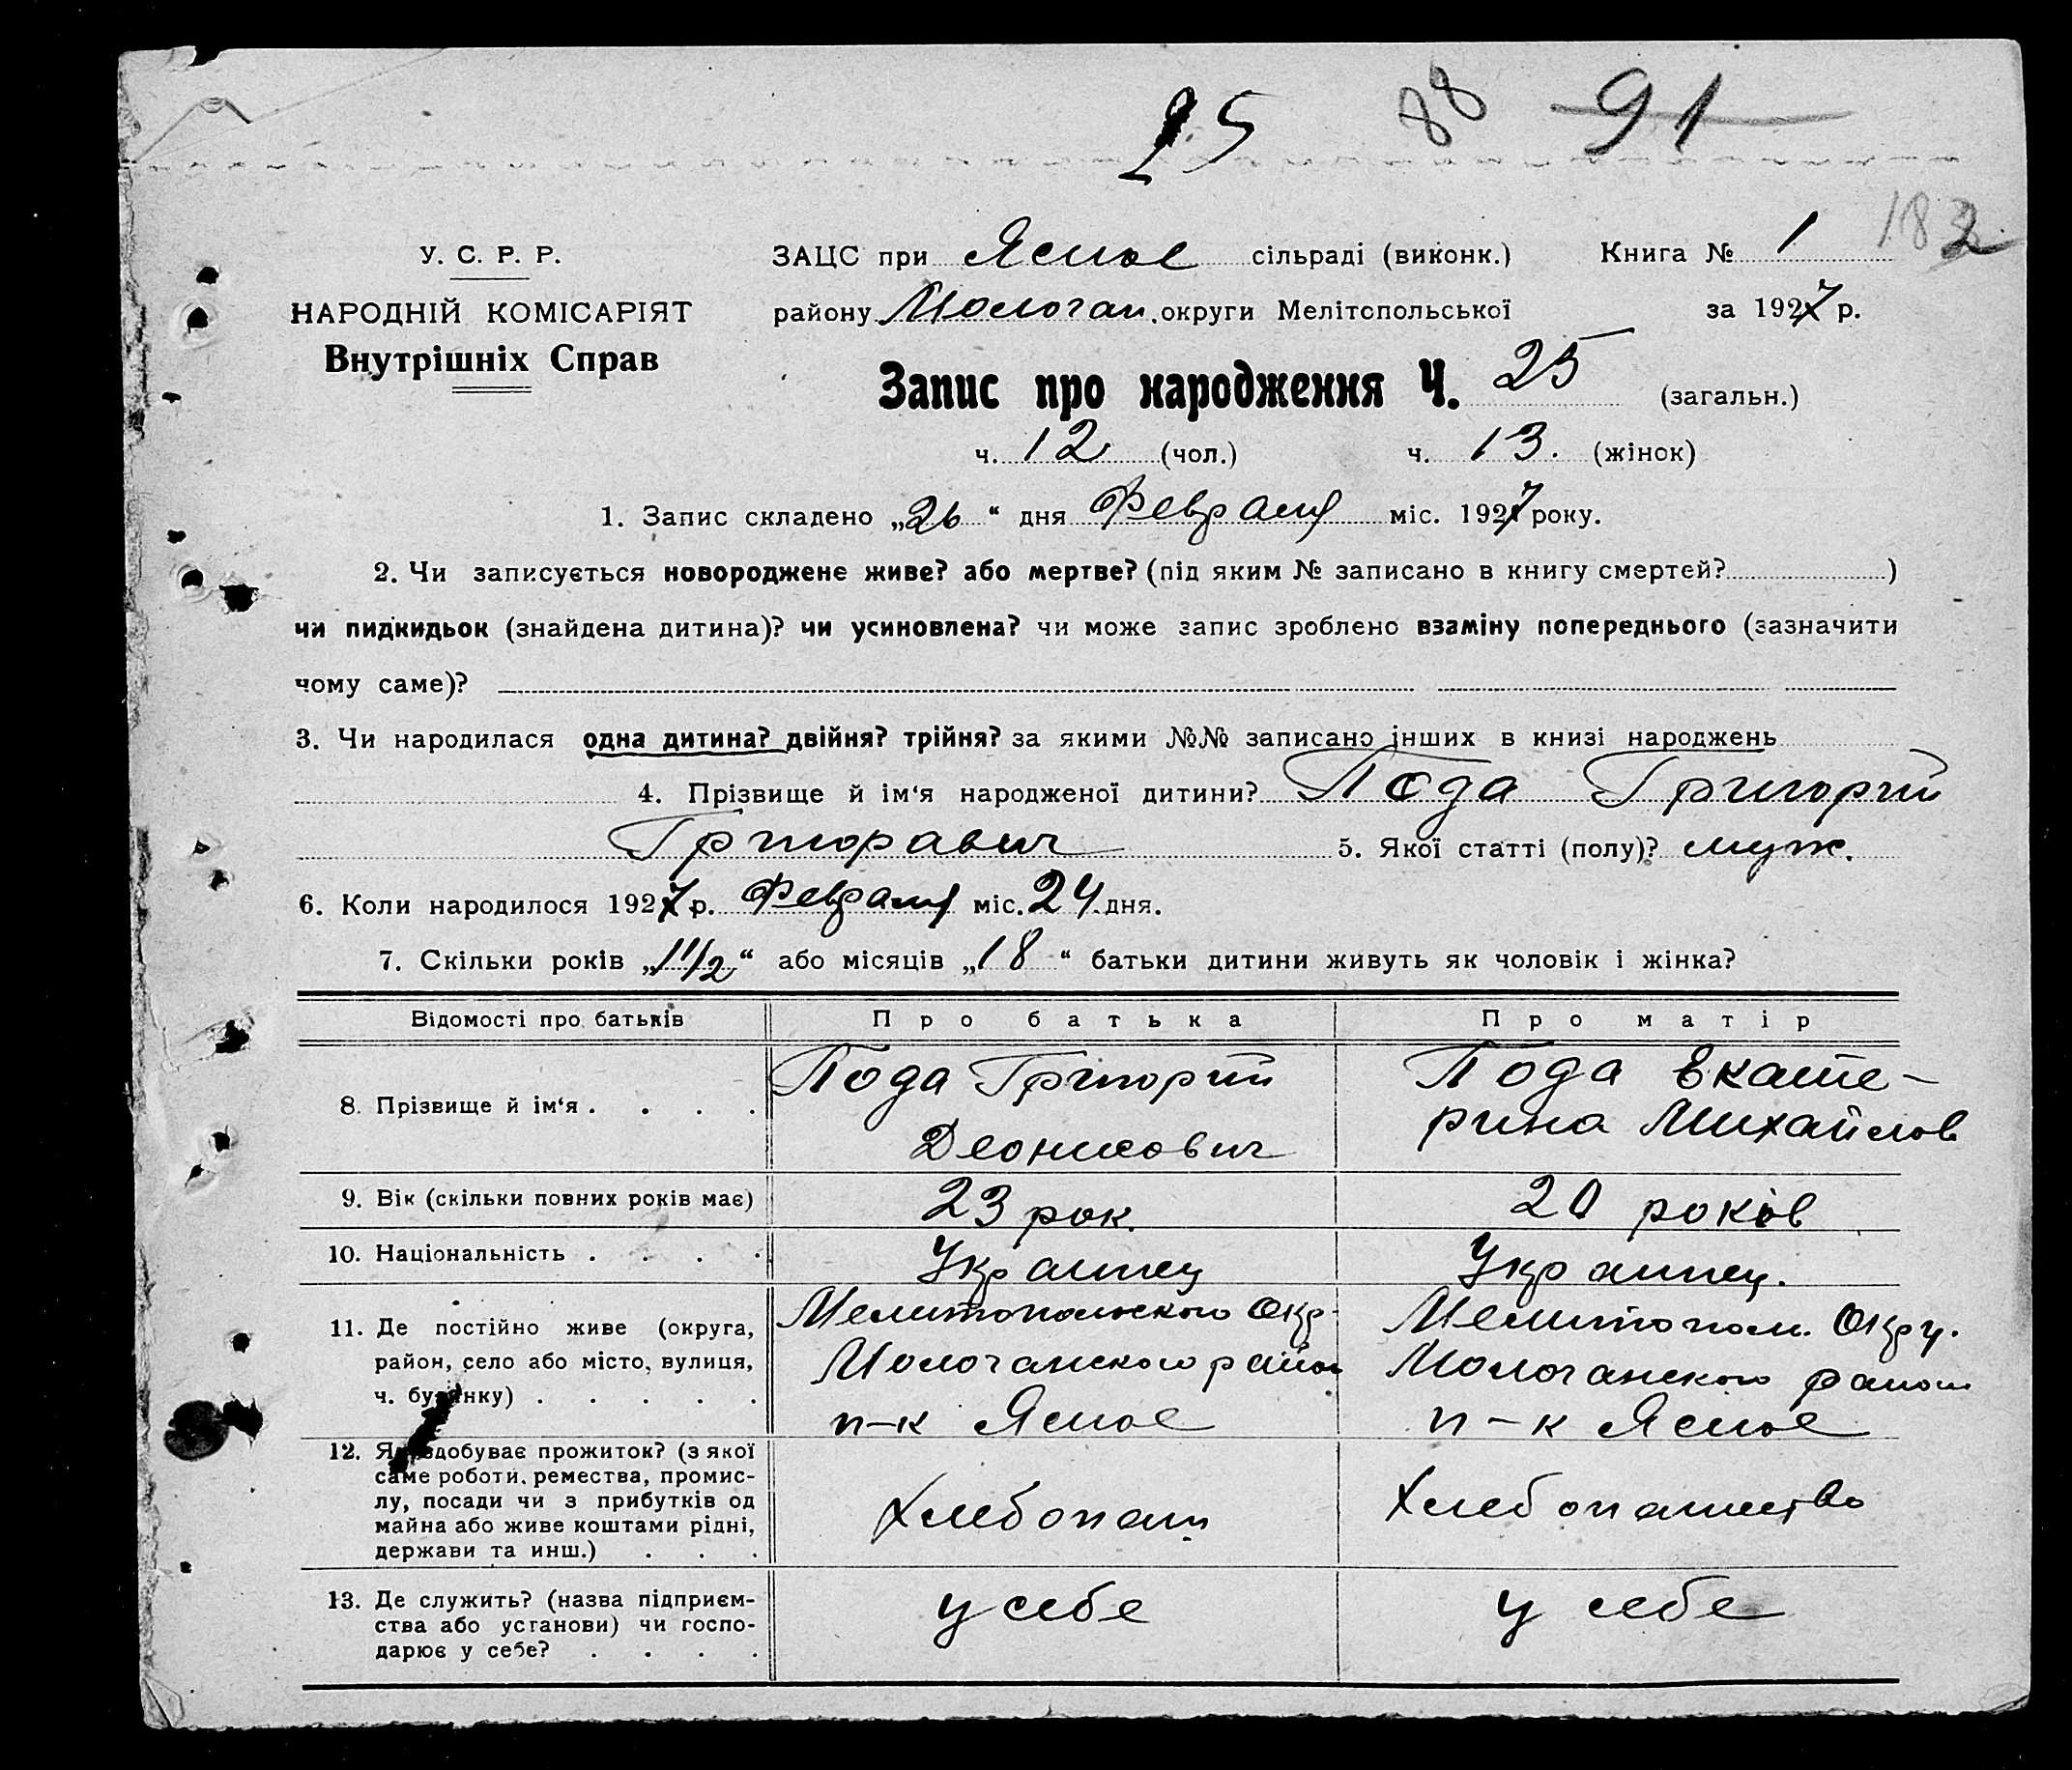 25 88 91
182
У. С. Р. Р.
НАРОДНІЙ КОМІСАРІЯТ
Внутрішніх Справ
ЗАЦС при Ясное сільраді (виконк.) Книга № 1
району Молочан. округи Мелітопольської за 1927 р.
Запис про народження Ч. 25 (загальн.)
ч. 12 (чол.) ч. 13. (жінок)
1. Запис складено „26“ дня Февраля міс. 1927 року.
2. Чи записується новороджене живе? або мертве? (під яким № записано в книгу смертей? )
чи пидкидьок (знайдена дитина)? чи усиновлена? чи може запис зроблено взаміну попереднього (зазначити
чому саме)?
3. Чи народилася одна дитина? двійня? трійня? за якими №№ записано інших в книзі народжень
4. Прізвище й ім‘я народженої дитини? Пода Григорий
Григоравич 5. Якої статті (полу)? муж.
6. Коли народилося 1927 р. Февраля міс. 24 дня.
7. Скільки років „1 1/2“ або місяців „18“ батьки дитини живуть як чоловік і жінка?
Відомості про батьків Про батька Про матір
8. Прізвище й ім‘я . . . . Пода Григорий Пода Екате-
Деонисович рина Михайлов
9. Вік (скільки повних років має) 23 рок. 20 років
10. Національність . . . . Украинец Украинец.
11. Де постійно живе (округа, Мелитопольского Окр. Мелитопол. Окру.
район, село або місто, вулиця, Молочанского район Молочанского район
ч. будинку) . . . . . п-к Ясное п-к Ясное
12. Як здобуває прожиток? (з якої
саме роботи, ремества, промис-
лу, посади чи з прибутків од Хлебопаш Хлебопашество
майна або живе коштами рідні,
держави та инш.) . . .
13. Де служить? (назва підприєм- у себе у себе
ства або установи) чи госпо-
дарює у себе? . . . .